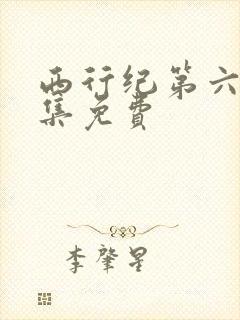 西行纪第六
集免费
李肇星